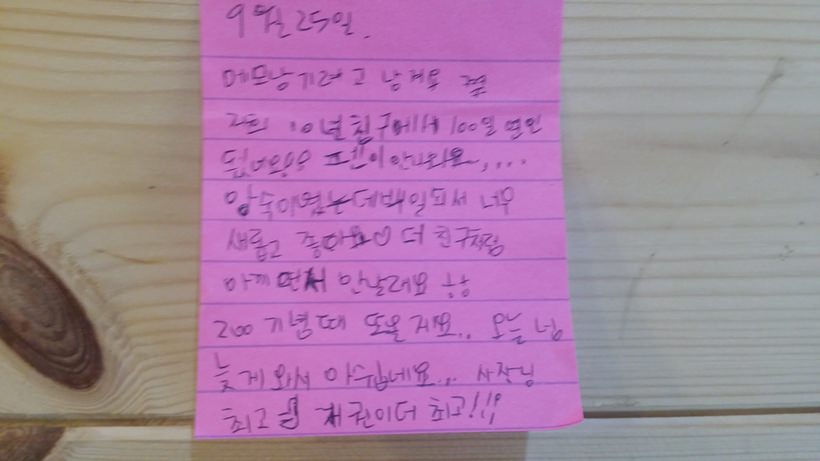 9월 25일.
메모남기려고 남겨용
저희 10년 친구에서 100일 연인
됬어용용 펜이안나와요....
앙숙이였는데백일되서 너무
새롭고 좋아요♡ 더 친구처럼
아끼면서 만날래요 핳
200 기념때 또올게요.. 오늘 넘
늦게와서 아쉽네요... 사장님
최고 권이더 최고!!!